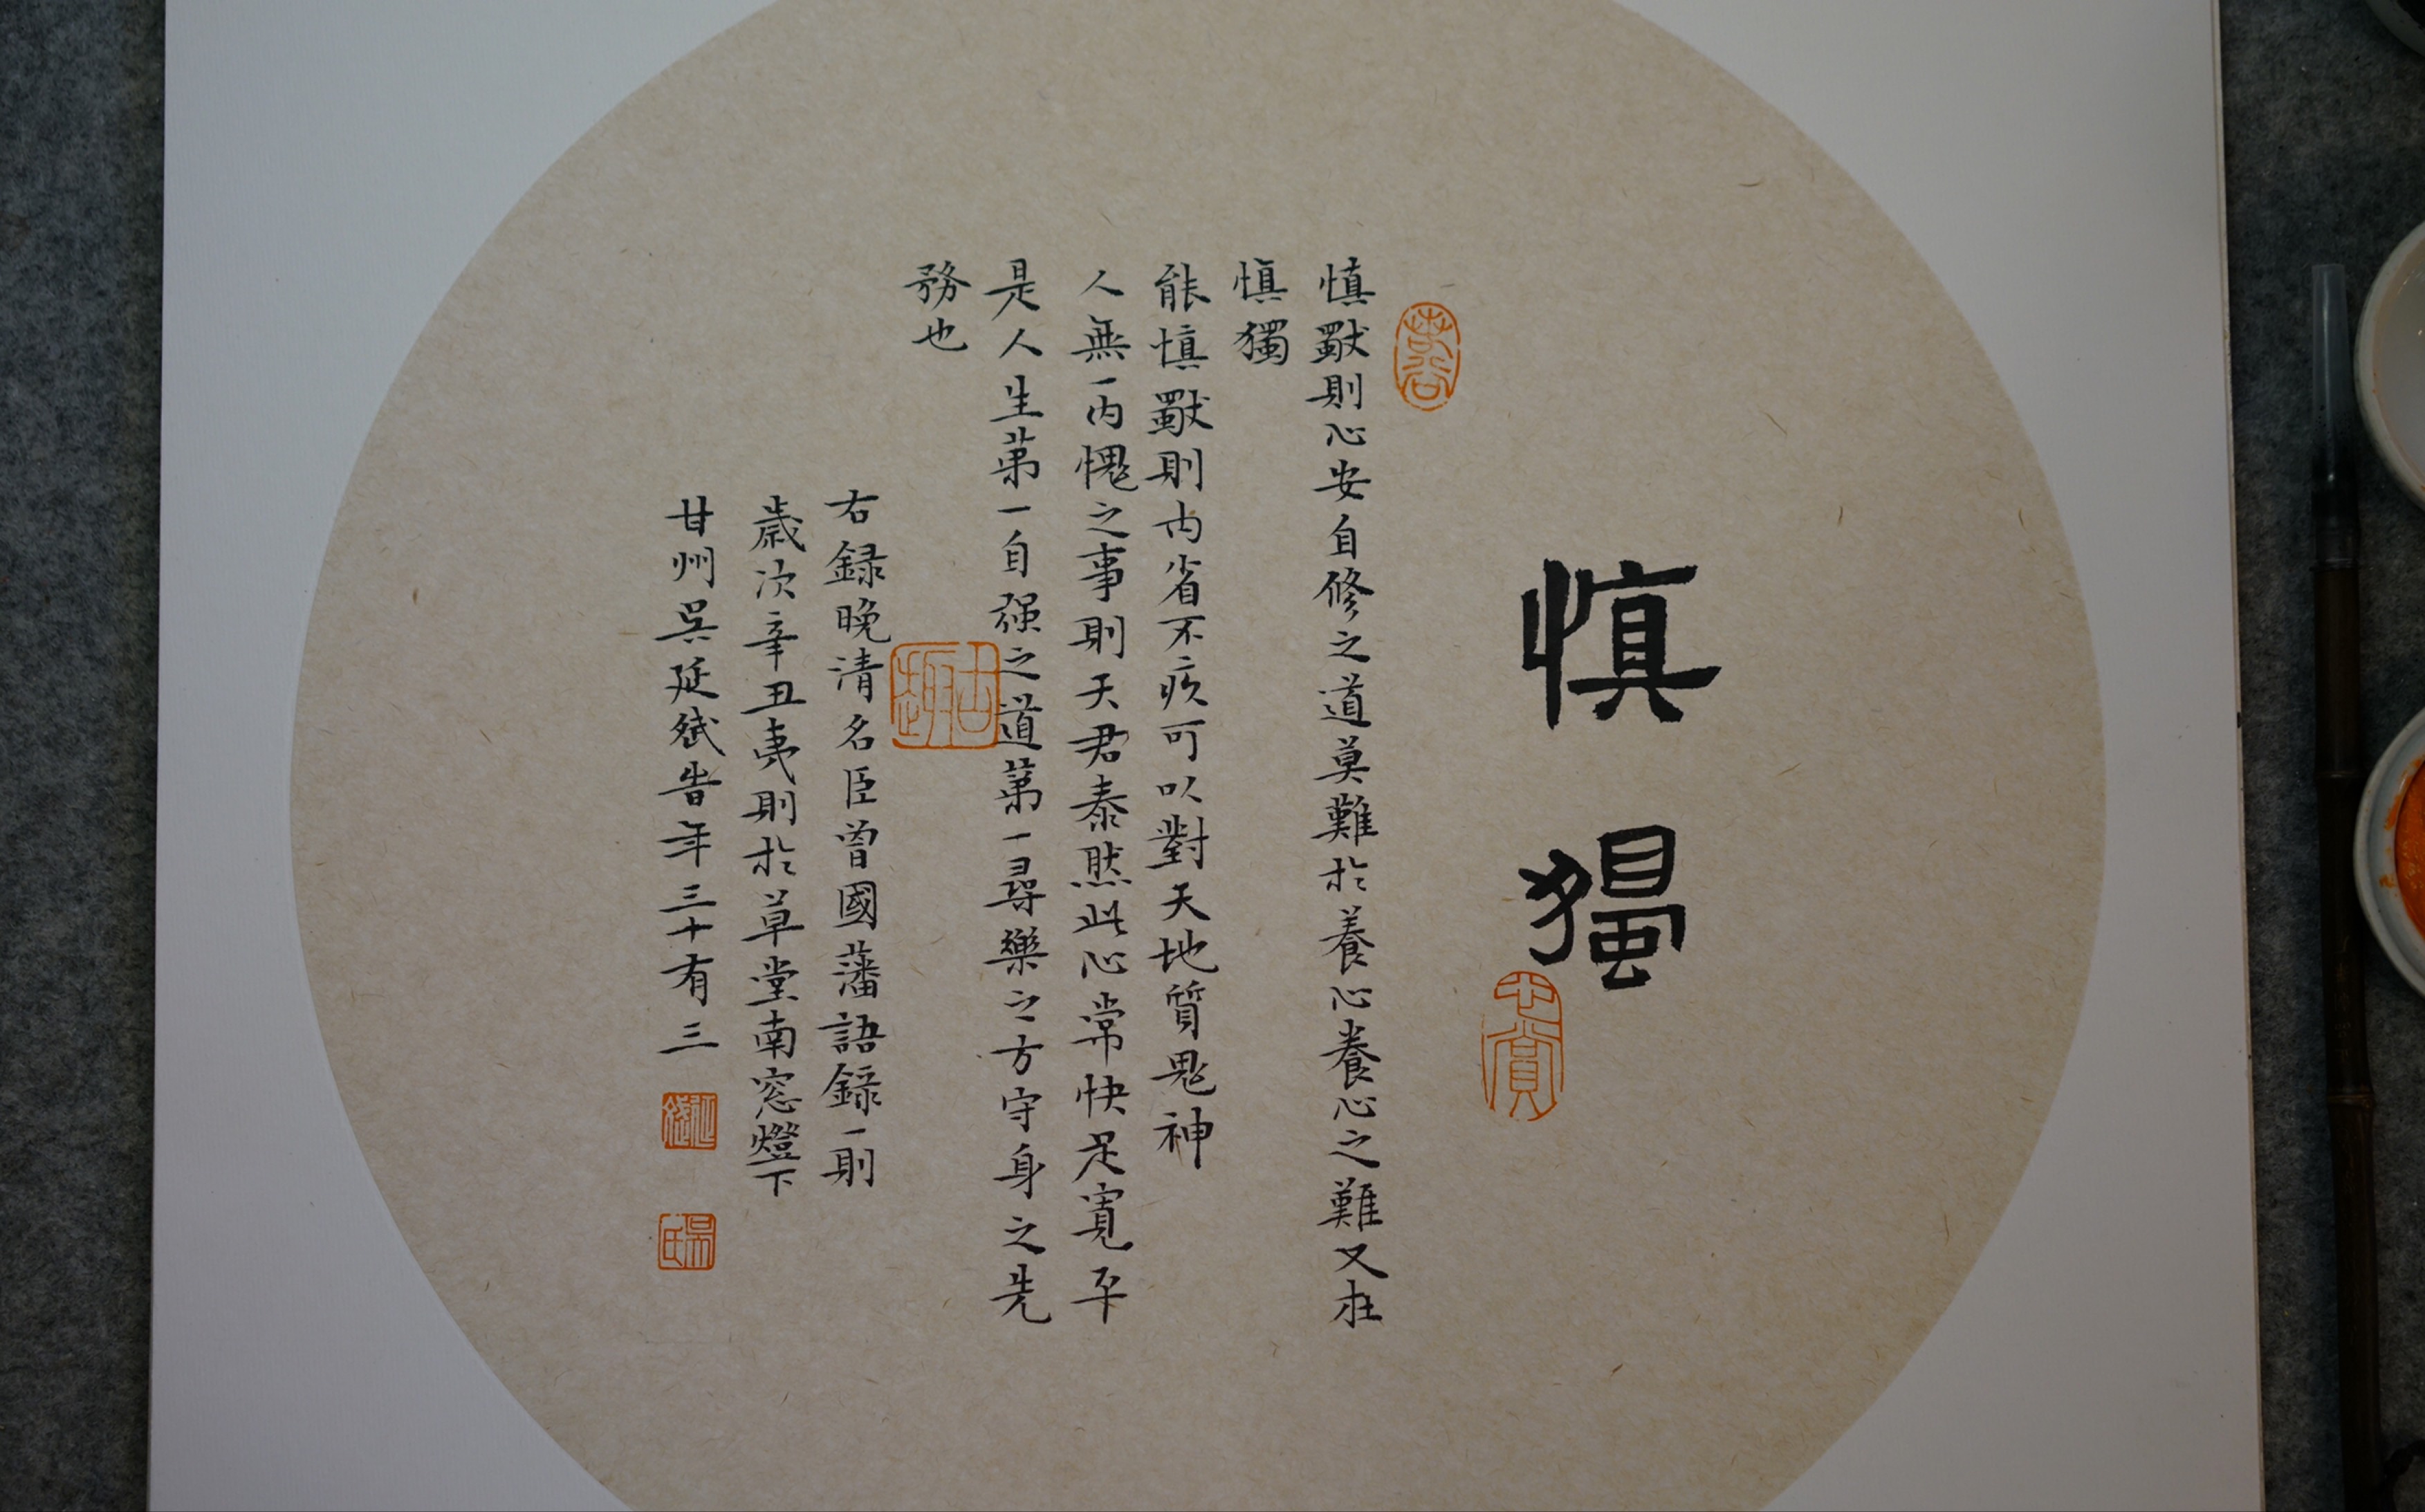 慎獨
慎獸則心安自修之道莫難於養心養心之難又在
慎獨
能慎獸則内省不疚可以對天地質鬼神
人無一内愧之事則天君泰然此心常快足寬平
是人生第一自强之道第一尋樂之方守身之先
務也
右録晚清名臣曾國藩語録一則
歲次辛丑夷則於草堂南窓燈下
甘州吳延斌告年三十有三
吳氏